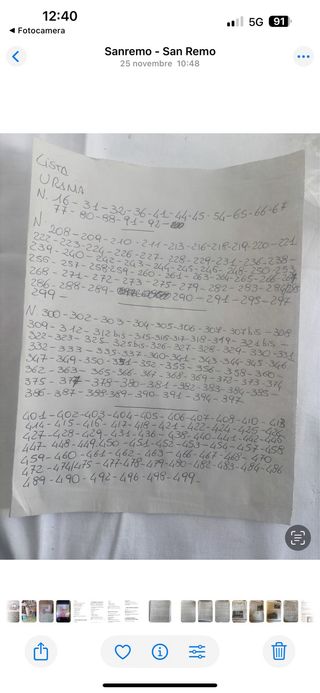 12:40
5G 91
◀ Fotocamera
Sanremo - San Remo
25 novembre 10:48
Lista
URSNA
N. 16-31-32-36-41-44-45-54-65-66-67
77-80-88-91-92-
N. 208-209-210-211-213-216-218-219-220-221
222-223-224-226-227-228-229-231-236-238-
239-240-242-243-244-245-246-248-250-253
256-257-258-259-260-261-263-264-265-266-
268-271-272-273-275-279-282-283-284
286-288-289-290-291-295-297
299-
N. 300-302-303-304-305-306-307-307bis-308
309-312-312bis-315-316-317-318-319-321bis-
322-323-325-325bis-326-327-328-329-330-331
332-333-335-337-340-341-343-344-345-346
347-349-350-351-352-355-356-358-360-
362-363-365-366-367-368-369-372-373-374
375-377-378-380-381-382-383-384-385-
386-387-388-389-390-391-394-397-
401-402-403-404-405-406-407-408-410-413
414-415-416-417-418-421-422-424-425-426
427-428-429-431-436-438-440-441-442-446
447-448-449-450-451-452-453-454-457-458
459-460-461-462-463-466-467-468-470
472-474/475-477-478-479-480-482-483-484-486
489-490-492-496-498-499-